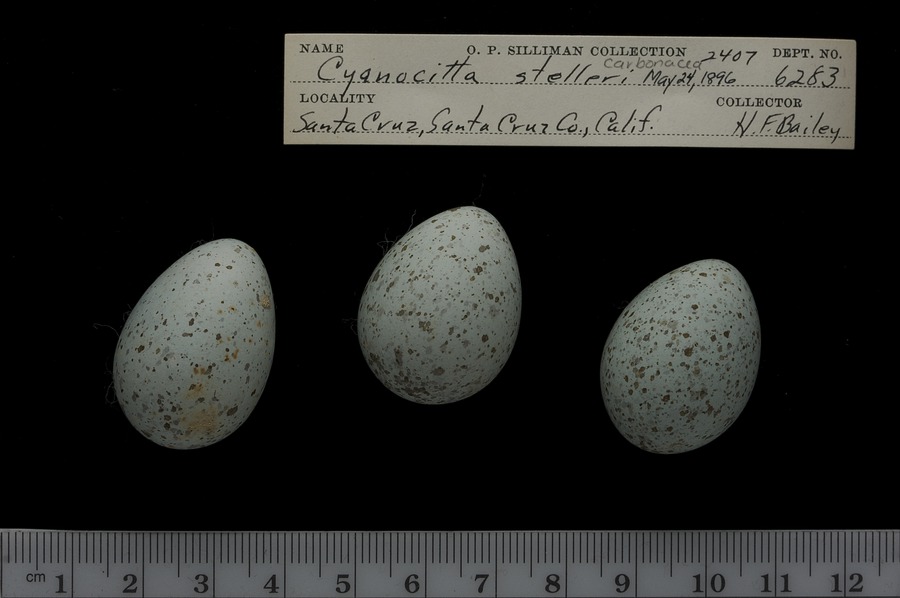 NAME O. P. SILLIMAN COLLECTION 2407 DEPT. NO.
Cyanocitta stelleri carbonacea May 24, 1896 6283
LOCALITY COLLECTOR
Santa Cruz, Santa Cruz Co., Calif. H. F. Bailey
cm 1 2 3 4 5 6 7 8 9 10 11 12